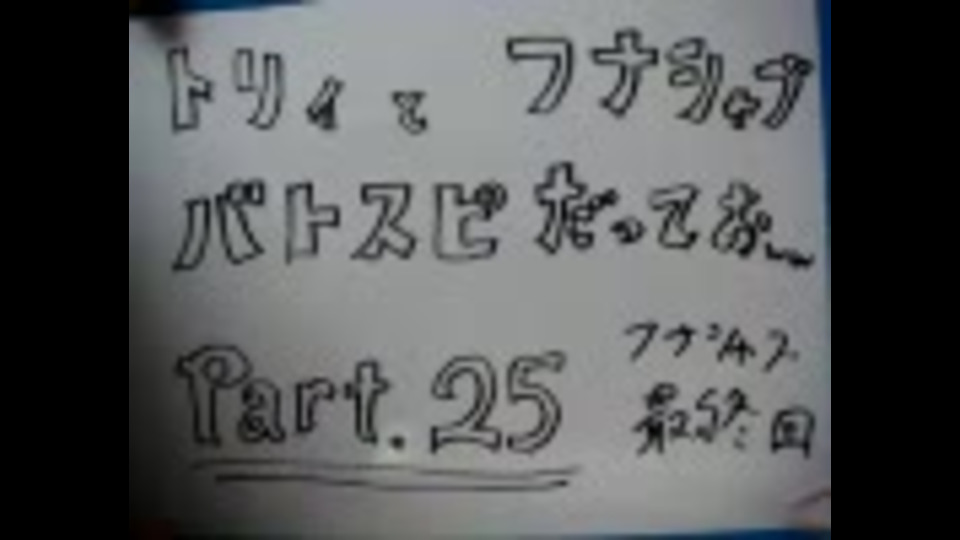 トリィと フナシャブ
バトスピだってお~
Part.25
フナシャブ
最終回